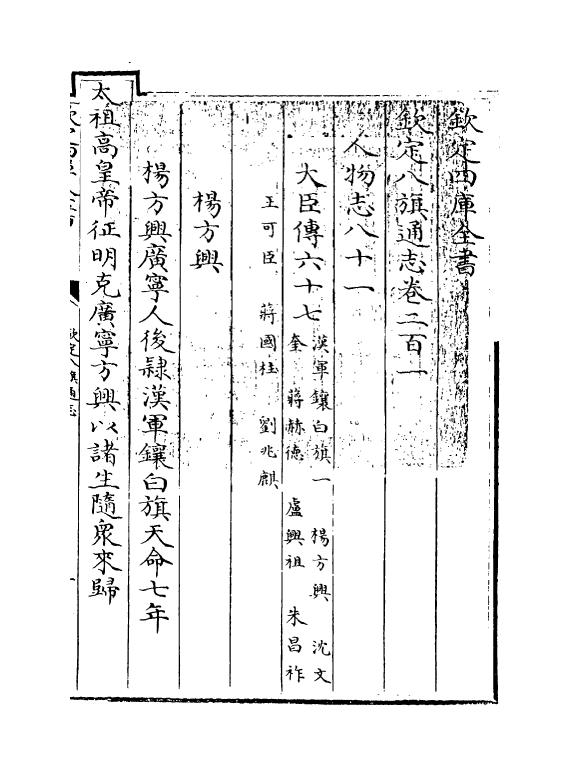 欽定四庫全書
欽定八旗通志卷二百一
人物志八十一
大臣傳六十七
漢軍鑲白旗一 楊方興 沈文
奎 蔣赫德 盧興祖 朱昌祚
王可臣 蔣國柱 劉兆麒
楊方興
楊方興廣寧人後隸漢軍鑲白旗天命七年
太祖高皇帝征明克廣寧方興以諸生隨衆來歸